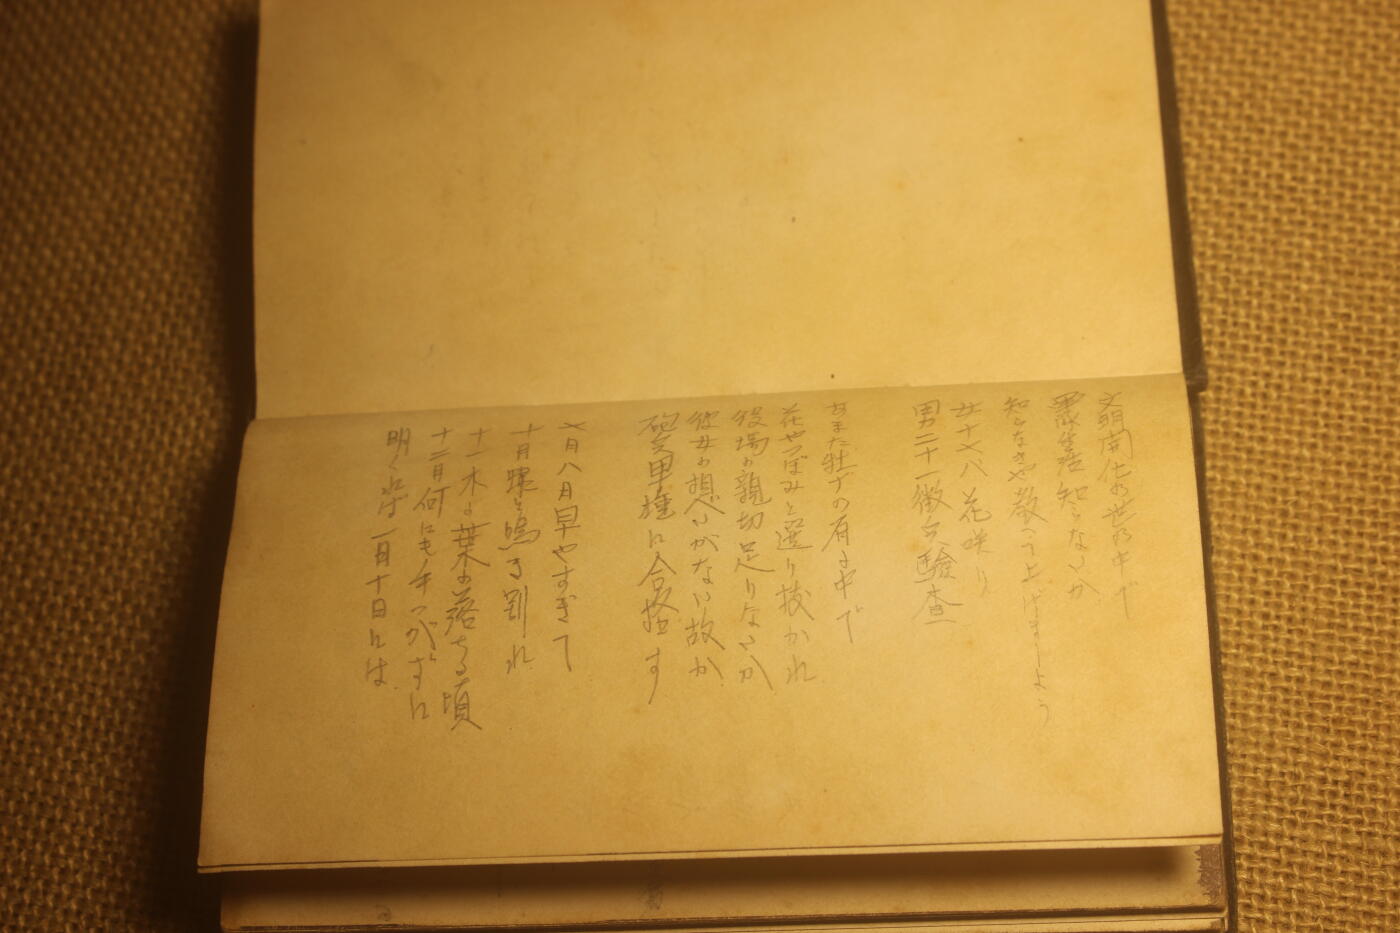 文明開化の世の中で
軍隊生活知らないか
知らなきや教へて上げましよう
女十七八花咲り
男二十一徴兵験査
あまた壮丁の有る中で
花やつぼみと選り抜かれ
役場の親切足りないか
彼女の想いがない故か
砲兵甲種に合格す
七月八月早やすぎて
十月
鳴る割れ
十一木の葉の落ちる頃
十二月何にも手つがずに
明くれば一月十日には